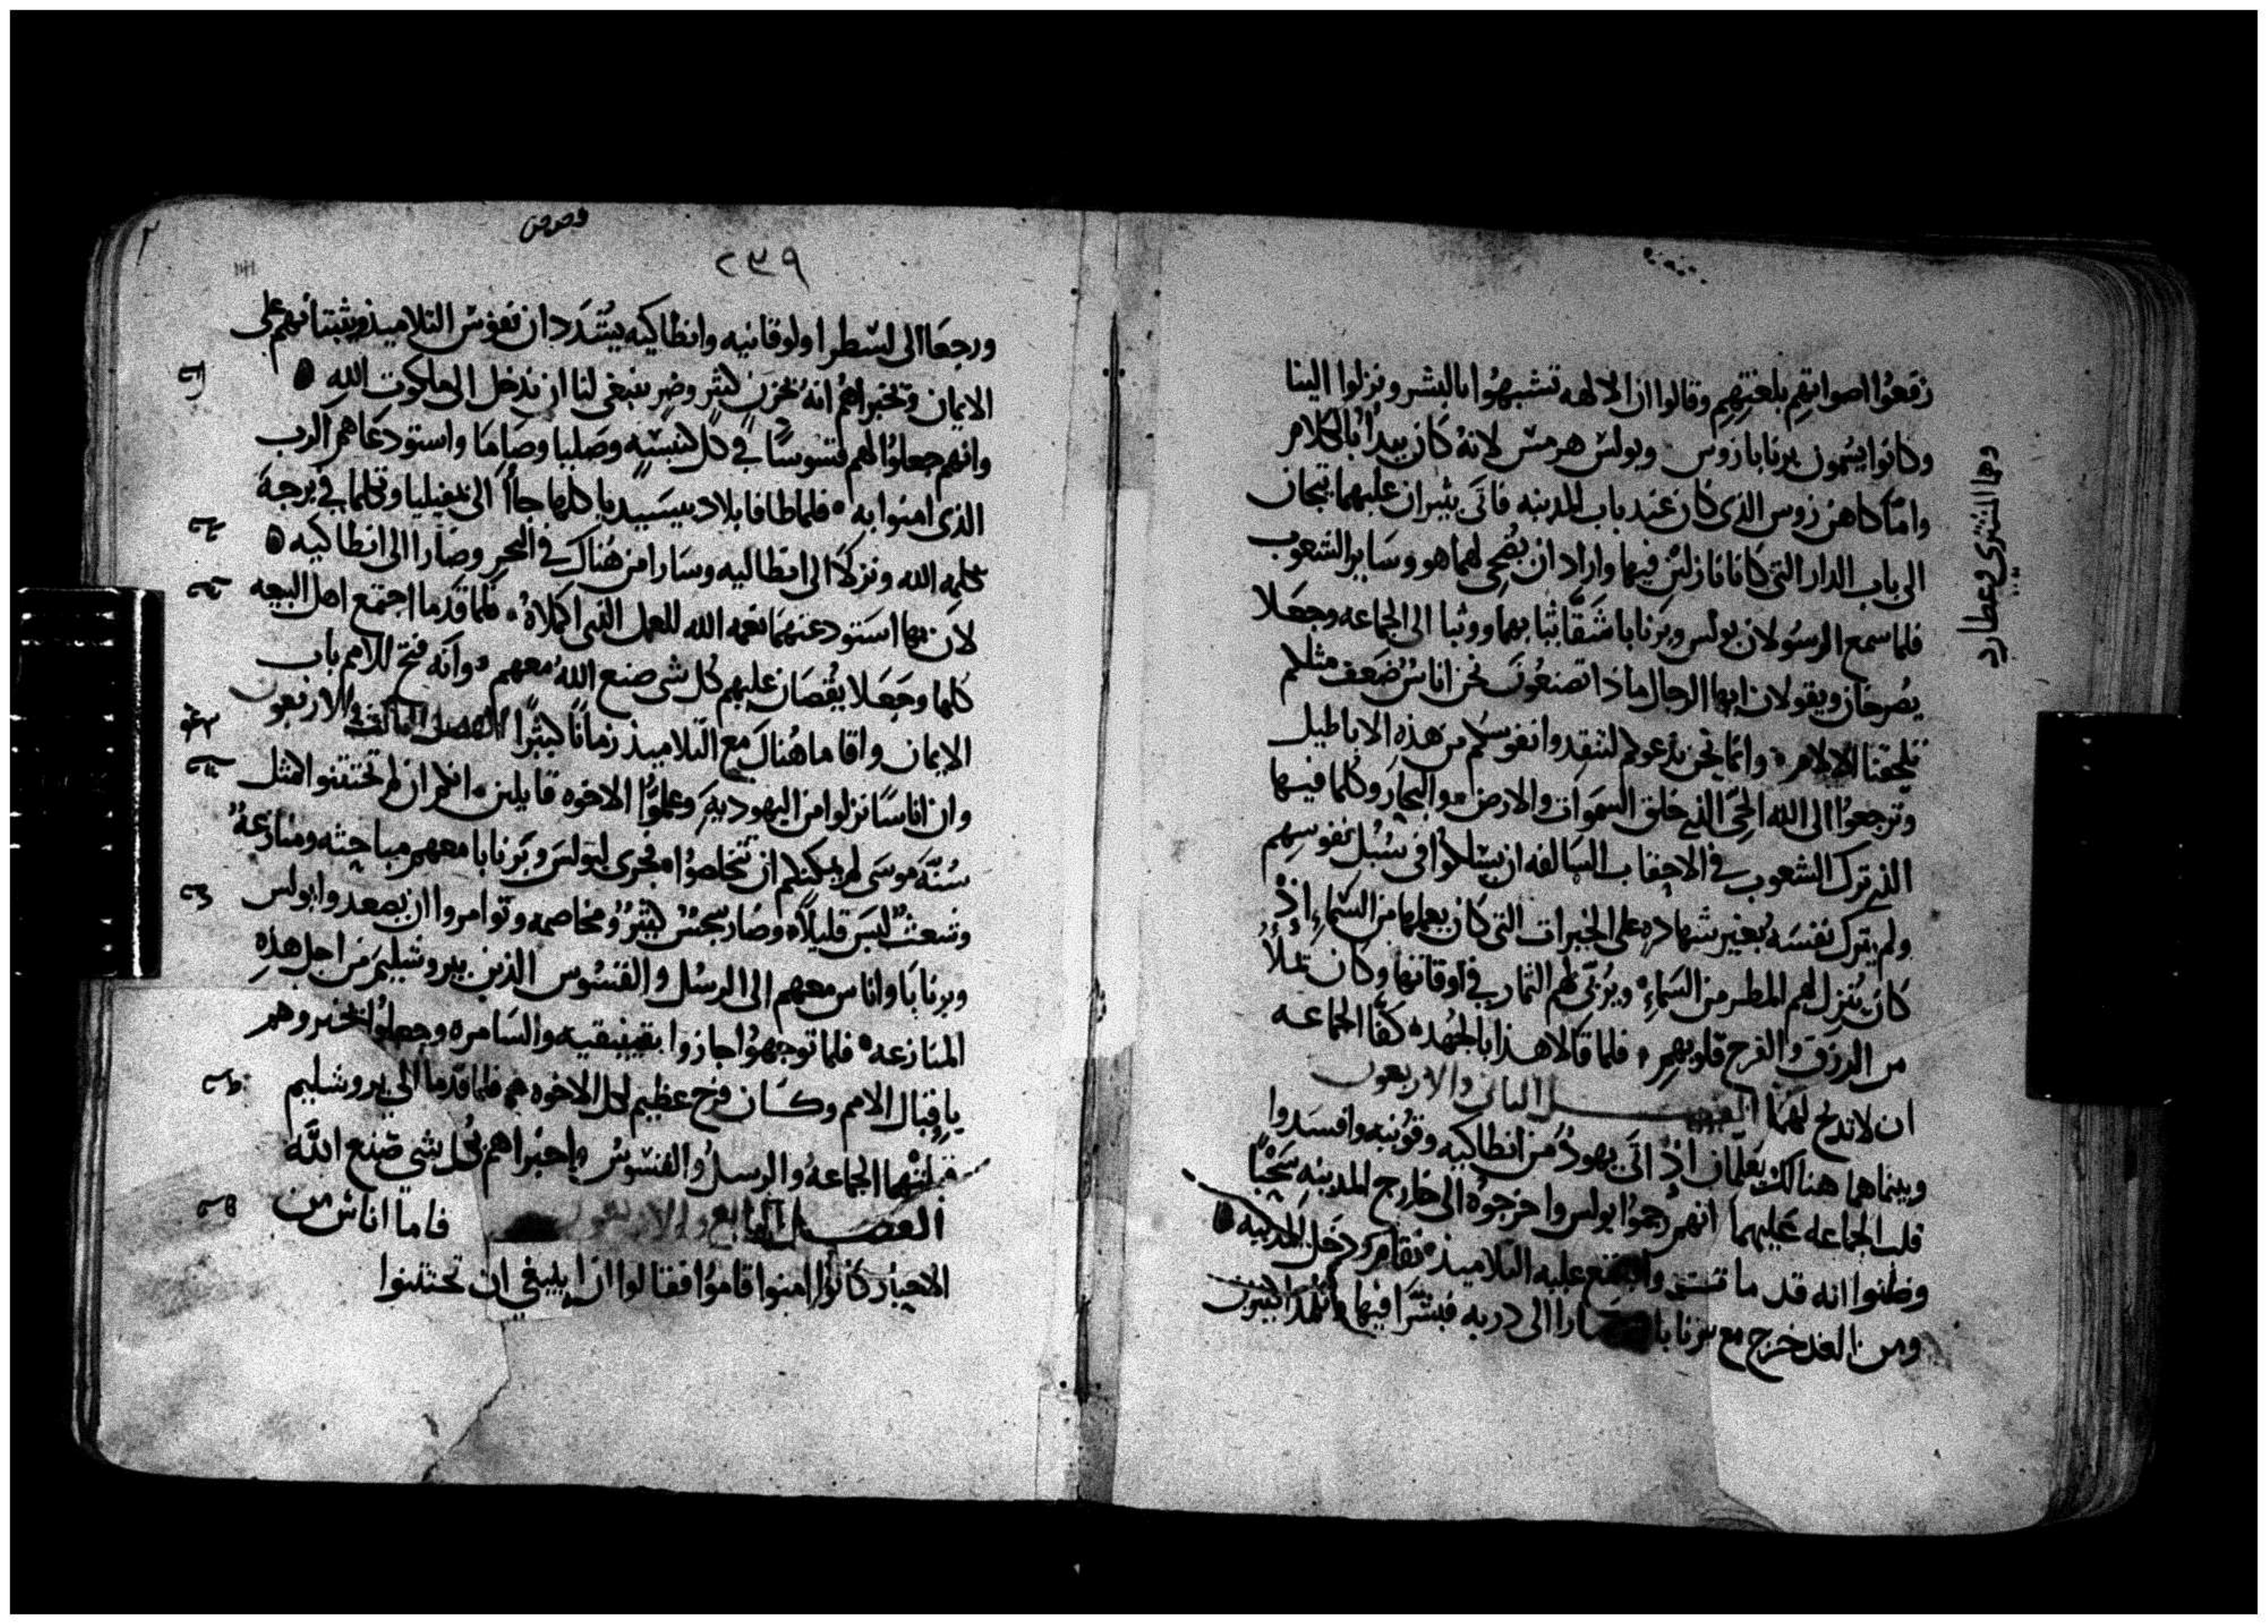 رفعوا اصواتهم بلغتهم وقالوا ان الالهه تشبهوا بالبشر ونزلوا الينا
وكانوا يسمون برنابا زوس وبولس هرمس لانه كان يبدأ بالكلام
واما كاهن زوس الذي كان عند باب المدينه فاتى بثيران عليهما تيجان
الى باب الدار التي كانا نازلين فيها واراد ان يضحي لهما هو وساير الشعوب
فلما سمع الرسولان بولس وبرنابا شققا ثيابهما ووثبا الى الجماعه وجعلا
يصرخان ويقولان ايها الرجال ماذا تصنعون نحن اناس ضعف مثلكم
تلحقنا الالام وانما نحن ندعوكم لتنقدوا نفوسكم من هذه الاباطيل
وترجعوا الى الله الحي الذي خلق السموات والارض والبحار وكلما فيها
الذي ترك الشعوب في الاحقاب السالفه ان يسلكوا في سبل نفوسهم
ولم يترك نفسه بغير شهاده على الخيرات التي كان يعملها من السماء اذ
كان ينزل لهم المطر من السماء ويربي لهم الثمار في اوقاتها وكان يملأ
من الرزق والفرح قلوبهم فلما قالا هذا بالجهد كفا الجماعه
ان لا تذبح لهما الفصل الثاني والاربعون
وبينما هما هنالك يعلمان اذ اتى يهود من انطاكيه وقونيه وافسدوا
قلب الجماعه عليهما انهم رجموا بولس واخرجوه الى خارج المدينه سحبا
وظنوا انه قد مات واجتمع عليه التلاميذ فقام ودخل المدينه
ومن الغد خرج مع برنابا وصارا الى دربه فبشرا فيها وتلمذا كثيرين
وهما المشتري وعطارد
قصص
٢٣٩
ورجعا الى لسطرا ولوقانيه وانطاكيه يشددان نفوس التلاميذ ويثبتانهم على
الايمان وتخبراهم انه بحزن كثير وضر ينبغي لنا ان ندخل الى ملكوت الله
وانهم جعلوا لهم قسوسا في كل كنيسه وصليا وصاما واستودعاهم الرب
الذي امنوا به فلما طافا بلاد بيسيديا كلها جاأا الى بمفيليا وتكلما في برجه
بكلمه الله ونزلا الى انطاليه وسارا من هناك في البحر وصارا الى انطاكيه
لان بها استودعتهما نعمه الله للعمل الذي اكملاه فلما قدما اجتمع اهل البيعه
كلها وجعلا يقصان عليهم كل شي صنع الله معهم وانه فتح للامم باب
الايمان واقاما هناك مع التلاميذ زمانا كثيرا الفصل الثالث والاربعون
وان اناسا نزلوا من اليهوديه وعلموا الاخوه قايلين انكم ان لم تختتنوا كمثل
سنة موسى لم يمكنكم ان تخلصوا فجرى لبولس وبرنابا معهم مباحثه ومنازعه
وشعث ليس قليلا وصار بحث كثير ومخاصمه وتوامروا ان يصعدوا بولس
وبرنابا واناس معهم الى الرسل والقسوس الذين بيروشليم من اجل هذه
المنازعه فلما توجهوا جازوا بفينيقيه والسامره وجعلوا تخبروهم
باقبال الامم وكان فرح عظيم لكل الاخوه فلما قدما الى يروشليم
قبلتهما الجماعه والرسل والقسوس واخبراهم بكل شي صنع الله
الفصل الرابع والاربعون فاما اناس من
الاحبار كانوا امنوا قاموا فقالوا ان ينبغي ان تختتنوا